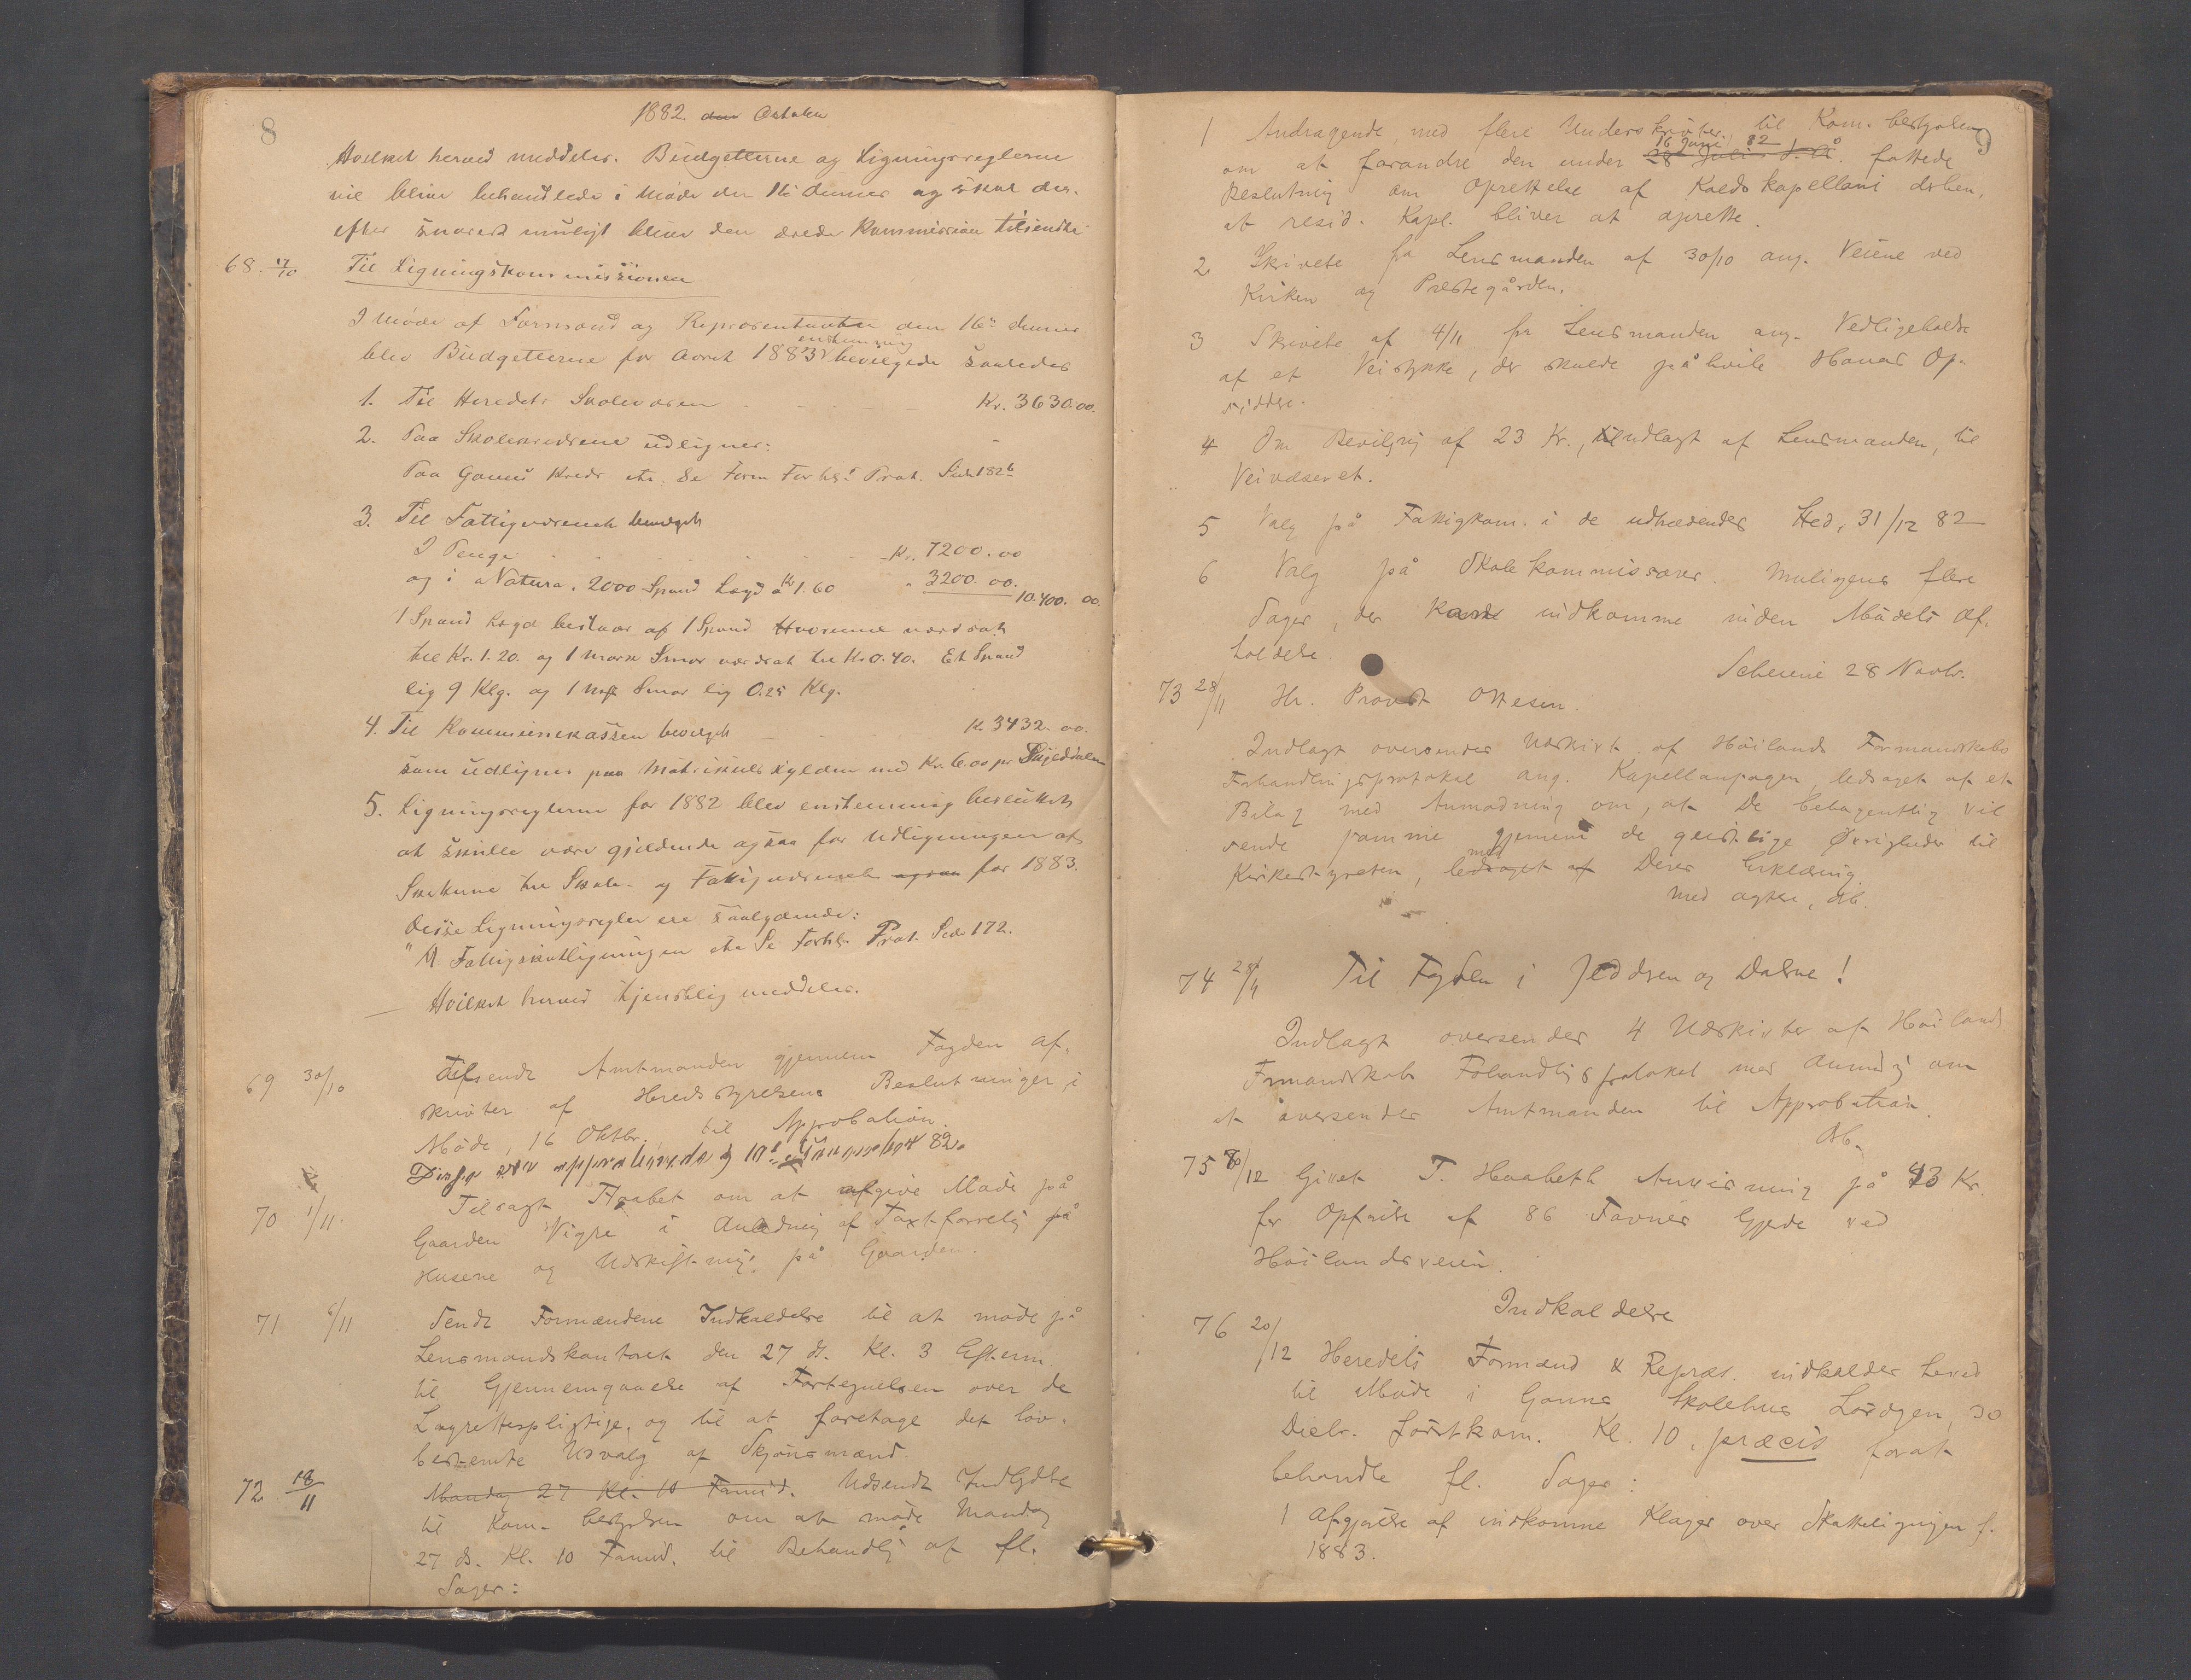 8
1882. den October
Hvilket herved meddeles. Budgetterne og Ligningsreglerne
vil blive behandlede i Møde den 16 dennes og skal der-
efter snarest muligt blive den ærede Kommission tilsendte
68. 17/10 Til Ligningskommissionen
I Møde af Formænd og Repræsentanter den 16de dennes
blev Budgetterne for Aaret 1883 enstemmig bevilgede saaledes
1. Til Heredets Skolevæsen Kr. 3630.00.
2. Paa Skolekredsene udlignes:
Paa Gannes Kreds etc. Se Form Forhs. Prot. Side 182
3. Til Fattigvæsenet bevilget
I Penge Kr. 7200.00
og i Natura. 2000 Spand Lægd à Kr 1.60 " 3200.00. 10.400.00.
1 Spand Lægd bestaar af 1 Spand Havremel værdsat
til Kr. 1.20. og 1 Mark Smør værdsat til Kr 0.40. Et Spand
lig 9 Klg. og 1 Mark Smør lig 0.25 Klg.
4. Til Kommunekassen bevilget K. 3432.00.
som udlignes paa Matrikulskylden med Kr. 6.00 pr Skjelddaler
5. Ligningsreglerne for 1882 blev enstemmig besluttet
at skulle være gjeldende ogsaa for Udligningen af
Skatterne til Skole- og Fattigvæsenet ogsaa for 1883.
Disse Ligningsregler ere saalydende:
" A. Fattigskatligningen etc Se Forhs. Prot. Side 172.
Hvilket herved tjenstlig meddeles.
69 30/10 Tilsendt Amtmanden gjennem Fogden Af-
skrivter af Heredsstyrelsens Beslutninger i
Møde, 16 Oktbr. til Approbation.
Disse ere approberede 82.
70 1/11. Tilsagt at afgive Møde på
Gaarden Vigre i Anledning af Taxtforretg på
Husene og Udskiftning på Gaarden.
71 6/11 Sendt Formændene Indkaldelse til at møde på
Lensmandskontoret den 27 ds. Kl. 3 Efterm.
til Gjennemgaaelse af Fortegnelsen over de
Lagrettespligtige, og til at foretage det lov-
bestemte Udvalg af Skjønsmænd.
72. 18/11 Mandag 27 Kl. 10 Formid. Udsendt Indbydelse
til Kom. bestyrelsen om at møde Mandag
27 ds. Kl. 10 Formd. til Behandlg af fl.
Sager:
9
1 Andragende med flere Underskrivter, til Kom. bestyrelsen
om at forandre den under 28 Juli d. A. 16 Juni 82 fattede
Beslutning om Oprettelse af Kaldskapellani derhen,
at resid. Kapl. bliver at oprette.
2 Skrivelse fra Lensmanden af 30/10 ang. Veiene ved
Kirken og Præstegården.
3 Skrivelse af 4/11 fra Lensmanden ang. Vedligeholdse
af et Veistykke, der skulde påhvile Opsiddere.
4 Om Bevilgng af 23 Kr., udlagt af Lensmanden, til
Veivæsenet.
5 Valg på Fattigkom. i de udtrædendes Sted, 31/12 82
6 Valg på Skolekommissærer. Muligens flere
Sager, der kunde indkomme inden Mødets Af-
holdelse.
Scheiene 28 Novbr.
73 28/11 Hr. Provst Ottesen.
Indlagt oversendes Udskrivt af Høilands Formandskabs
Forhandlingsprotokol ang. Kapellansagen, ledsaget af et
Bilag med Anmodning om, at De behagentlig vil
sende samme gjennem de geistlige Øvrigheder til
Kirkestyrelsen, ledsaget af med Deres Erklæring.
Med agtelse, Ab.
74 28/11 Til Fogden i Jedderen og Dalene!
Indlagt oversendes 4 Udskrivter af Høilands
Formandskabs Fohandligsprotokol med Anmodng om
at oversendes Amtmanden til Approbation.
Ab.
75 8/12 Givet T. Haabeth Anvisning på 43 Kr.
for Opførelse af 86 Favner Gjerde ved
Høilandsveien.
Indkaldelse
76 20/12 Heredets Formænd & Repræs. indkaldes herved
til Møde i Ganns Skolehus Lørdgen, 30
Decbr. førstkom. Kl. 10, præcis forat
behandle fl. Sager:
1 Afgjørelse af indkomne Klager over Skatteligningen f.
1883.